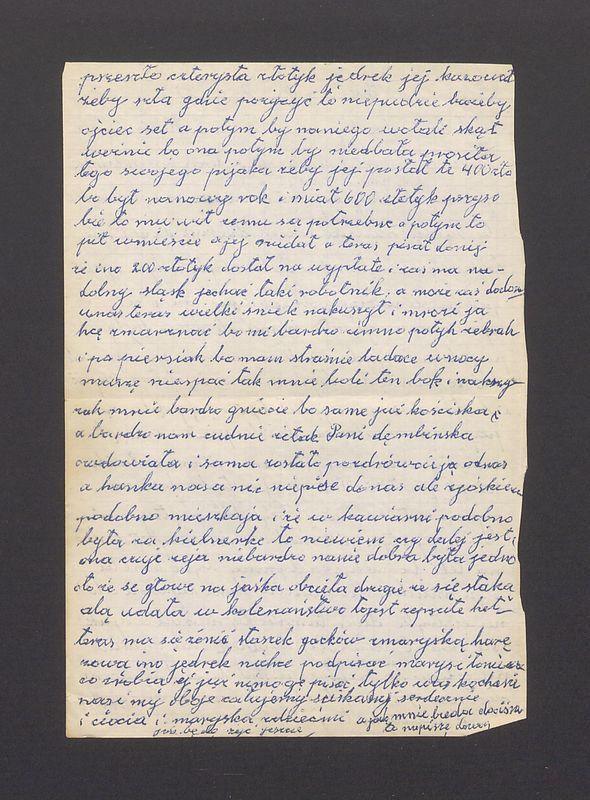 przeszło czterysta złotyk jędrek jej kazował
żeby szła gdzie pożyczyć to niepudzie bo żeby
ojciec set a potym by naniego wołali skąt
weźnie bo ona potym by niedbała prosiła
tego swojego pijaka żeby jej posłał te 400 zło
bo był nanowy rok i miał 600 złotyk przyso
bie to mu wit zemu sa potrzebne a potym to
pił wmieście a jej nidał a teras pisał doniej
że ino 200 złotyk dostał na wypłate i zas ma na-
dolny śląsk jechać taki robotnik, a może zaś
unas teras wielki śniek nakurzył i mrozi ja
hcę zmarznąć bo mi bardzo zimno potyh zebrah
i po piersiak bo mam straśnie ladace wnocy
muszę niespać tak mnie boli ten bok i nakrzy
zah mnie bardzo gniecie bo same już kościska
a bardzo nam cudnie że tak Pani dębinska
owdowiała i sama została pozdrówcie ją odnas
a hanka nasa nic niepise donas ale zjóśkiem
podobno mieszkaja i że w kawiarni podobno
była za kielnerkę to niewiem czy dalej jest,
ona czuje że ja niebardzo nanie dobra była jedno
to że se głowe na jaśka obcięła drugie że się staka
alą udała w koleżaństwo to jest zepsute het
teras ma się żenić staszek gacków zmaryśką
zową ino jędrek niehce podpisać marysi
co zrobią ej już nimogę pisać tylko was kochani
nasi my oboje całujemy ściskamy serdecznie
i ciocia i maryśka zdziećmi a jak mnie bedzie
jus będe zyć jescec to napiszę